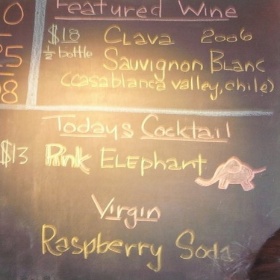 Featured Wine
$18 CLAVA 2006
½ bottle SAUVIGNON BLANC
(CASABLANCA VALLEY, CHILE)
Todays Cocktail
$13 PINK ELEPHANT
Virgin
Raspberry Soda